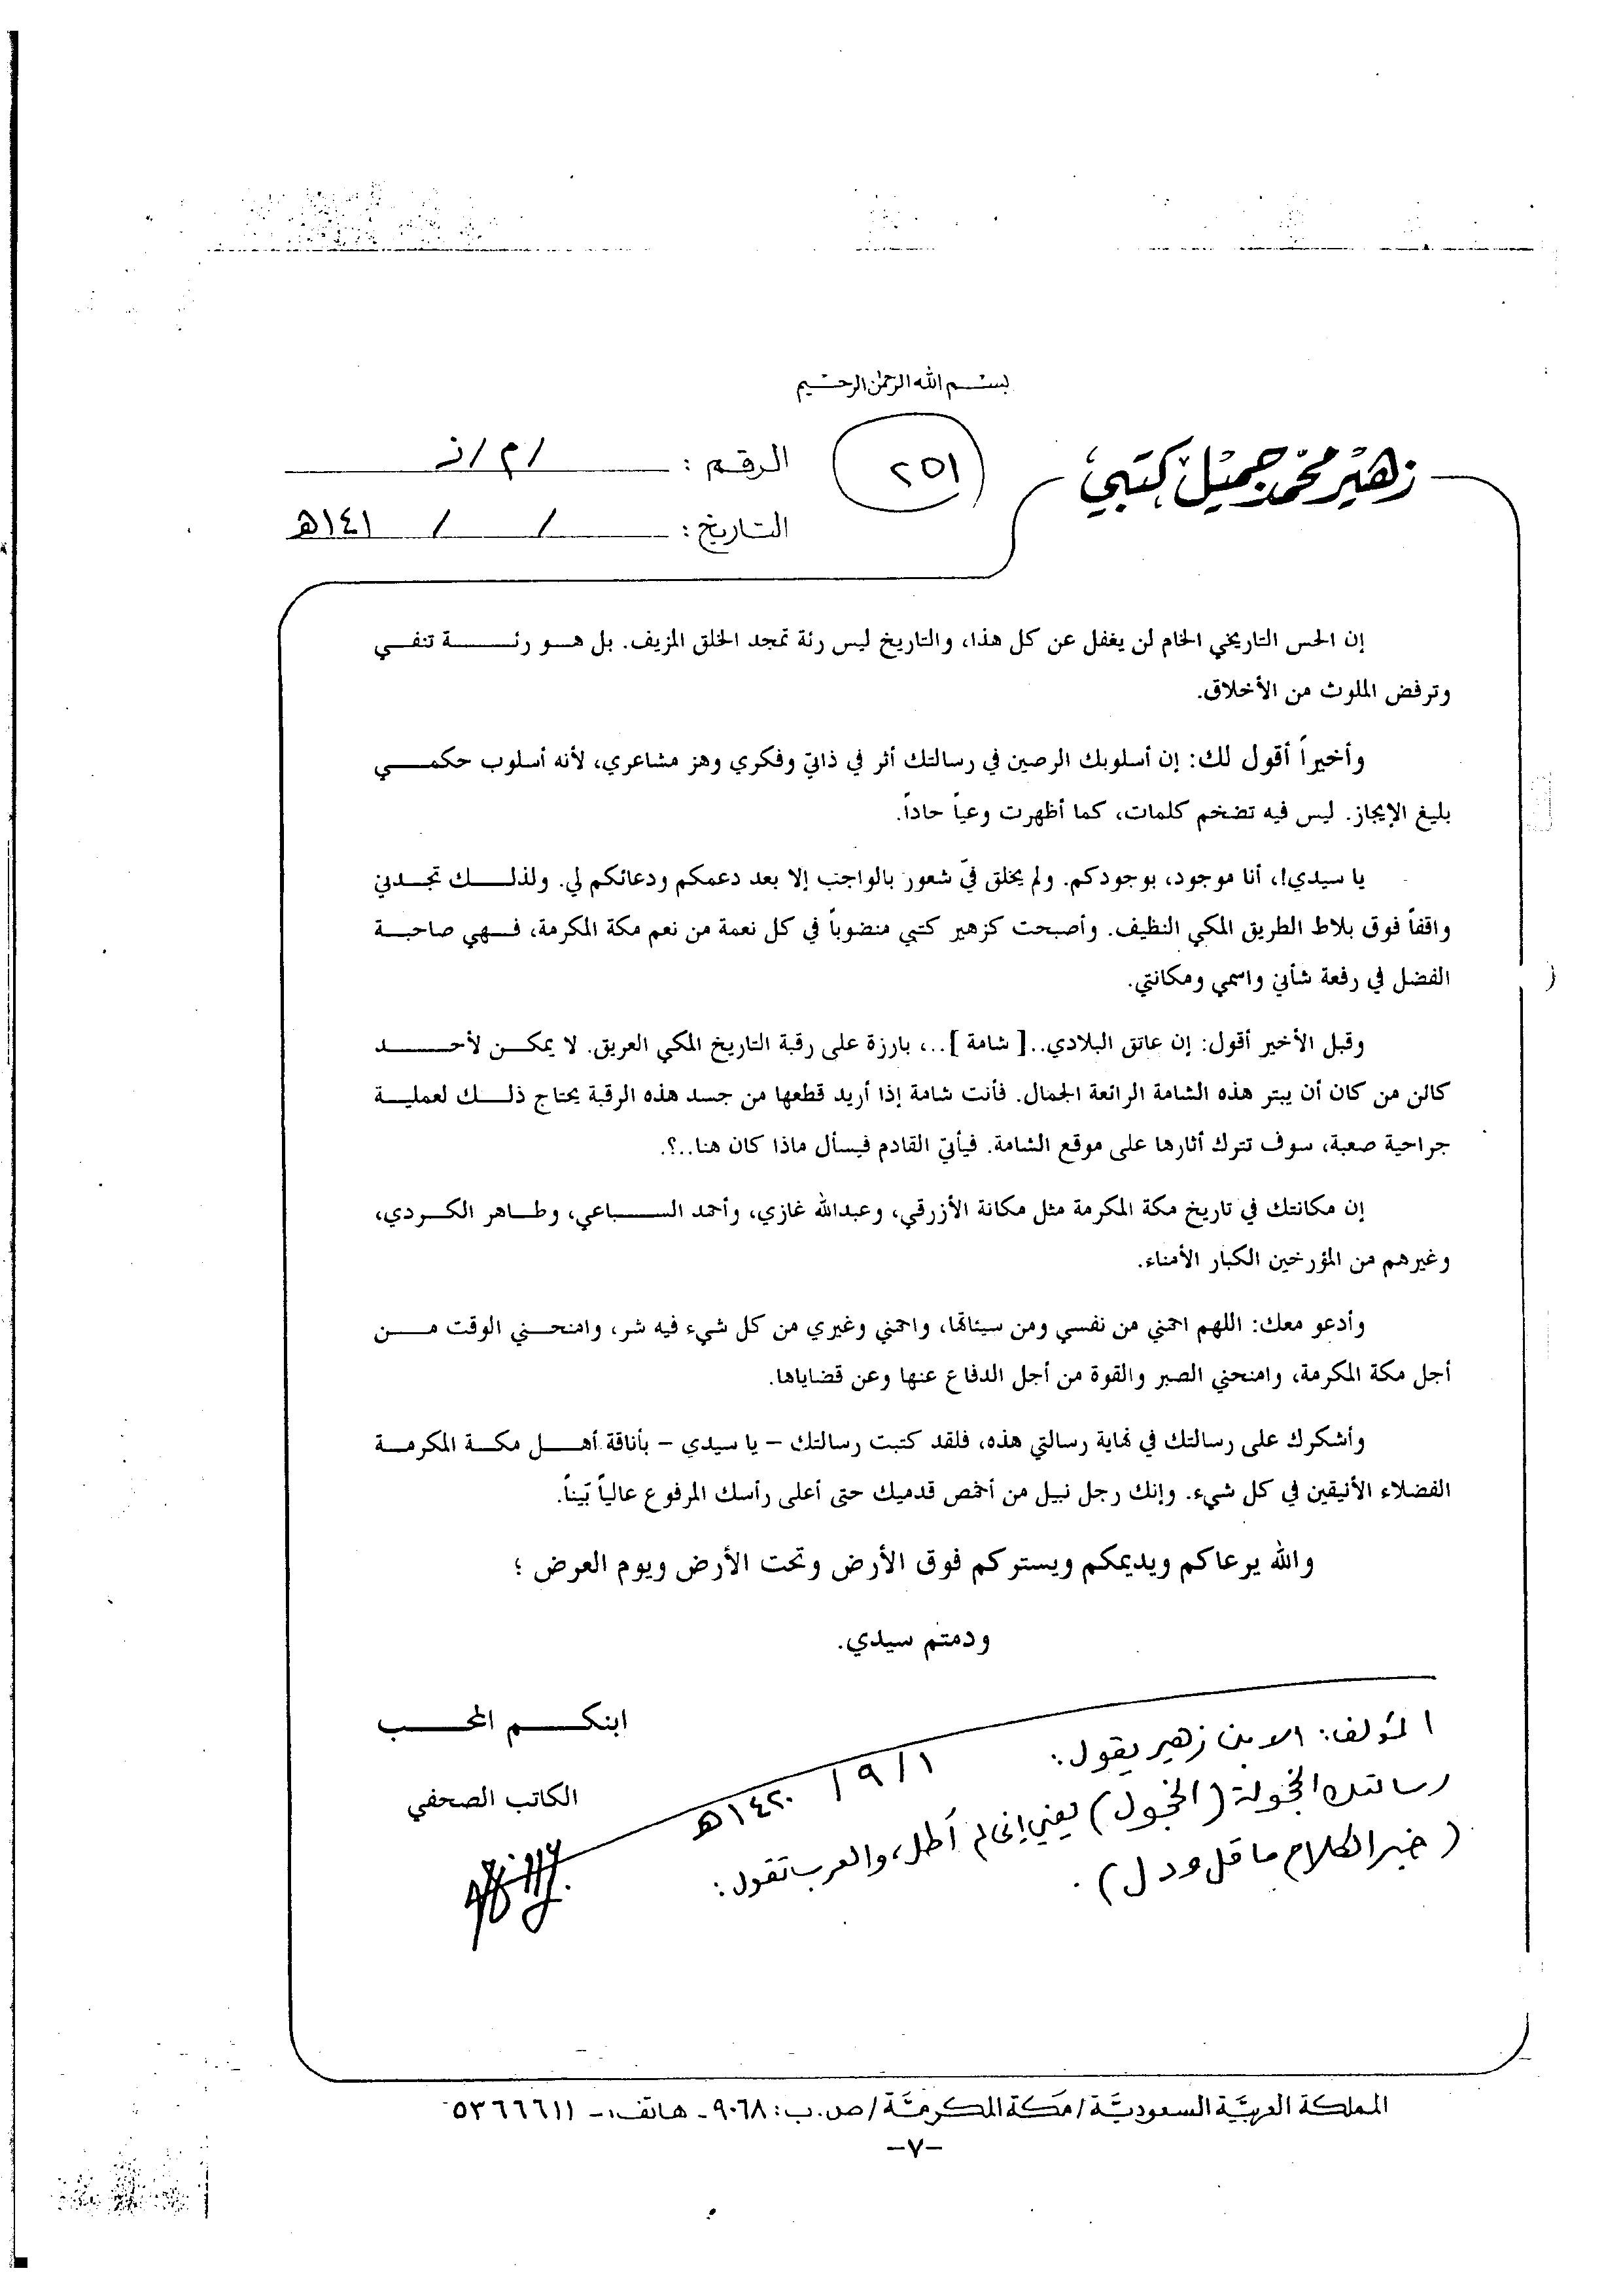 بسم الله الرحمن الرحيم
زهير محمد جميل كتبي
٢٥١
الرقم : / م / ز
التاريخ : / / ١٤١هـ
إن الحس التاريخي الخام لن يغفل عن كل هذا، والتاريخ ليس رئة تمجد الخلق المزيف. بل هو رئة تنفي
وترفض الملوث من الأخلاق.
وأخيراً أقول لك: إن أسلوبك الرصين في رسالتك أثر في ذاتي وفكري وهز مشاعري، لأنه أسلوب حكمي
بليغ الإيجاز. ليس فيه تضخم كلمات، كما أظهرت وعياً حاداً.
يا سيدي!، أنا موجود، بوجودكم. ولم يخلق فيّ شعور بالواجب إلا بعد دعمكم ودعائكم لي. ولذلك تجدني
واقفاً فوق بلاط الطريق المكي النظيف. وأصبحت كزهير كتبي منضوباً في كل نعمة من نعم مكة المكرمة، فهي صاحبة
الفضل في رفعة شأني واسمي ومكانتي.
وقبل الأخير أقول: إن عاتق البلادي..[ شامة ]..، بارزة على رقبة التاريخ المكي العريق. لا يمكن لأحد
كالن من كان أن يبتر هذه الشامة الرائعة الجمال. فأنت شامة إذا أريد قطعها من جسد هذه الرقبة يحتاج ذلك لعملية
جراحية صعبة، سوف تترك أثارها على موقع الشامة. فيأتي القادم فيسأل ماذا كان هنا..؟.
إن مكانتك في تاريخ مكة المكرمة مثل مكانة الأزرقي، وعبدالله غازي، وأحمد السباعي، وطاهر الكردي،
وغيرهم من المؤرخين الكبار الأمناء.
وأدعو معك: اللهم احمني من نفسي ومن سيئاتها، واحمني وغيري من كل شيء فيه شر، وامنحني الوقت من
أجل مكة المكرمة، وامنحني الصبر والقوة من أجل الدفاع عنها وعن قضاياها.
وأشكرك على رسالتك في نهاية رسالتي هذه، فلقد كتبت رسالتك – يا سيدي – بأناقة أهل مكة المكرمة
الفضلاء الأنيقين في كل شيء. وإنك رجل نبيل من أخمص قدميك حتى أعلى رأسك المرفوع عالياً بَيناً.
والله يرعاكم ويديمكم ويستركم فوق الأرض وتحت الأرض ويوم العرض ؛
ودمتم سيدي.
ابنكم المحب
الكاتب الصحفي
١ / ٩ / ١٤٢٠هـ
المؤلف: الابن زهير يقول:
رسالتك الخجولة (الخجول) يعني إني لم أطل، والعرب تقول:
(خير الكلام ما قل ودل).
المملكة العربيَّة السعوديَّة/مكة المكرمَّة/ص.ب: ٩٠٦٨ - هاتف: - ٥٣٦٦٦١١
-٧-